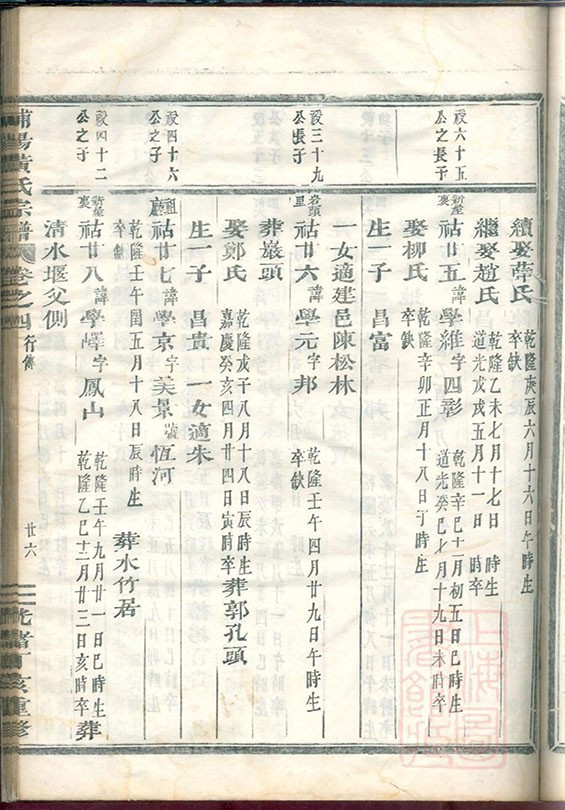 續娶薛氏 乾隆庚辰六月十六日午時生 卒缺
繼娶趙氏 乾隆乙未七月十七日 時生 道光戊戌五月十一日 時卒
設六十五公之長子 祜廿五 諱學維字四彰 乾隆辛巳十一月初五日巳時生 道光癸巳七月十九日未時卒
娶柳氏 乾隆辛卯正月十八日子時生 卒缺
生一子 昌富
一女適建邑陳松林
設三十九公長子 岩頭里 祜廿六 諱學元字邦 乾隆壬午四月廿九日午時生 卒缺
葬巖頭
娶鄭氏 乾隆戊午八月十八日辰時生 嘉慶癸亥四月廿四日寅時卒 葬郭孔頭
生一子 昌貴 一女適朱
設四十六公之子 祜廿七 諱學京字美景號恆河
乾隆壬午閏五月十八日辰時生 卒缺 葬水竹居
設四十二公之子 祜廿八 諱學嶧字鳳山 乾隆壬午九月廿一日巳時生 乾隆乙巳十二月廿三日亥時卒 葬
清水堰父側
浦陽黃氏宗譜 卷之四 行傳 廿六 光緒 亥重修
上海圖